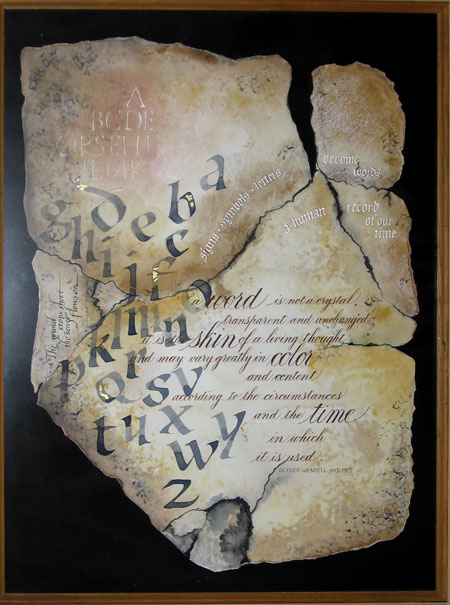 A
BCDE
a
b
c
d
e
f
g
h
i
j
k
l
m
n
o
p
q
r
s
t
u
v
w
x
y
z
signs - symbols - letters
become
words
a human
record
of our
time
"The sound
stops short
the sense
flows on"
a word is not a crystal,
transparent and unchanged,
it is the skin of a living thought
and may vary greatly in color
and content
according to the circumstances
and the time
in which
it is used.
OLIVER WENDELL HOLMES